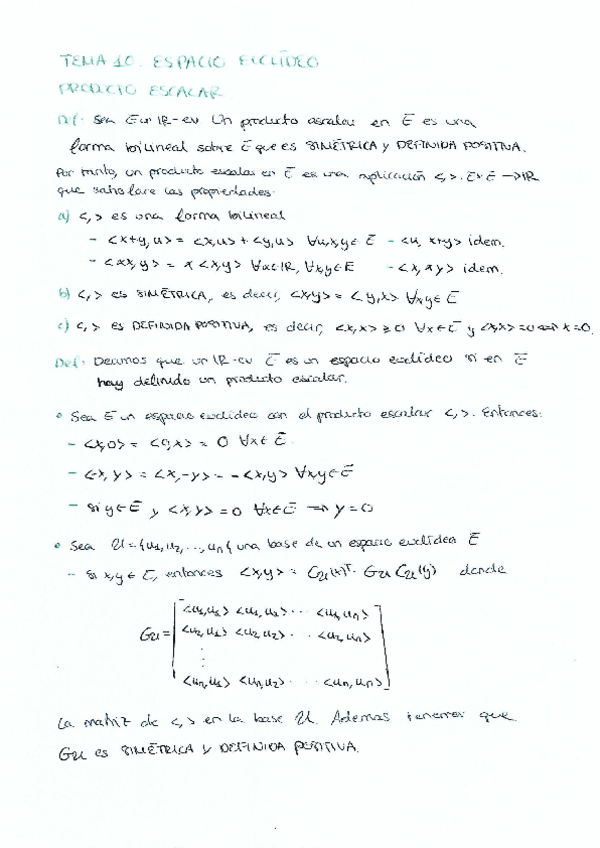 TEMA 10. ESPACIO EUCLÍDEO
PRODUCTO ESCALAR
Def: Sea E un IR-ev. Un producto escalar en E es una
forma bilineal sobre E que es SIMÉTRICA y DEFINIDA POSITIVA.
Por tanto, un producto escalar en E es una aplicación <,>: E×E → IR
que satisface las propiedades:
a) <,> es una forma bilineal
- <x+y, u> = <x,u> + <y,u> ∀u,x,y ∈ E - <u, x+y> idem.
- <αx,y> = α <x,y> ∀α∈IR, ∀x,y∈E - <x, αy> idem.
b) <,> es SIMÉTRICA, es decir, <x,y> = <y,x> ∀x,y ∈ E
c) <,> es DEFINIDA POSITIVA, es decir, <x,x> ≥ 0 ∀x∈E y <x,x> = 0 ⟺ x = 0.
Def: Decimos que un IR-ev E es un espacio euclídeo si en E
hay definido un producto escalar.
• Sea E un espacio euclídeo con el producto escalar <,>. Entonces:
- <x,0> = <0,x> = 0 ∀x∈E.
- <-x, y> = <x,-y> = -<x,y> ∀x,y∈E
- si y∈E y <x,y> = 0 ∀x∈E ⟹ y = 0
• Sea U = {u1, u2, ..., un} una base de un espacio euclídeo E
- si x,y ∈ E, entonces <x,y> = CU(x)T · GU CU(y) donde
<u1,u1> <u1,u2> ... <u1,un>
GU = <u2,u1> <u2,u2> ... <u2,un>
⋮
<un,u1> <un,u2> ... <un,un>
La matriz de <,> en la base U. Además tenemos que
GU es SIMÉTRICA y DEFINIDA POSITIVA.